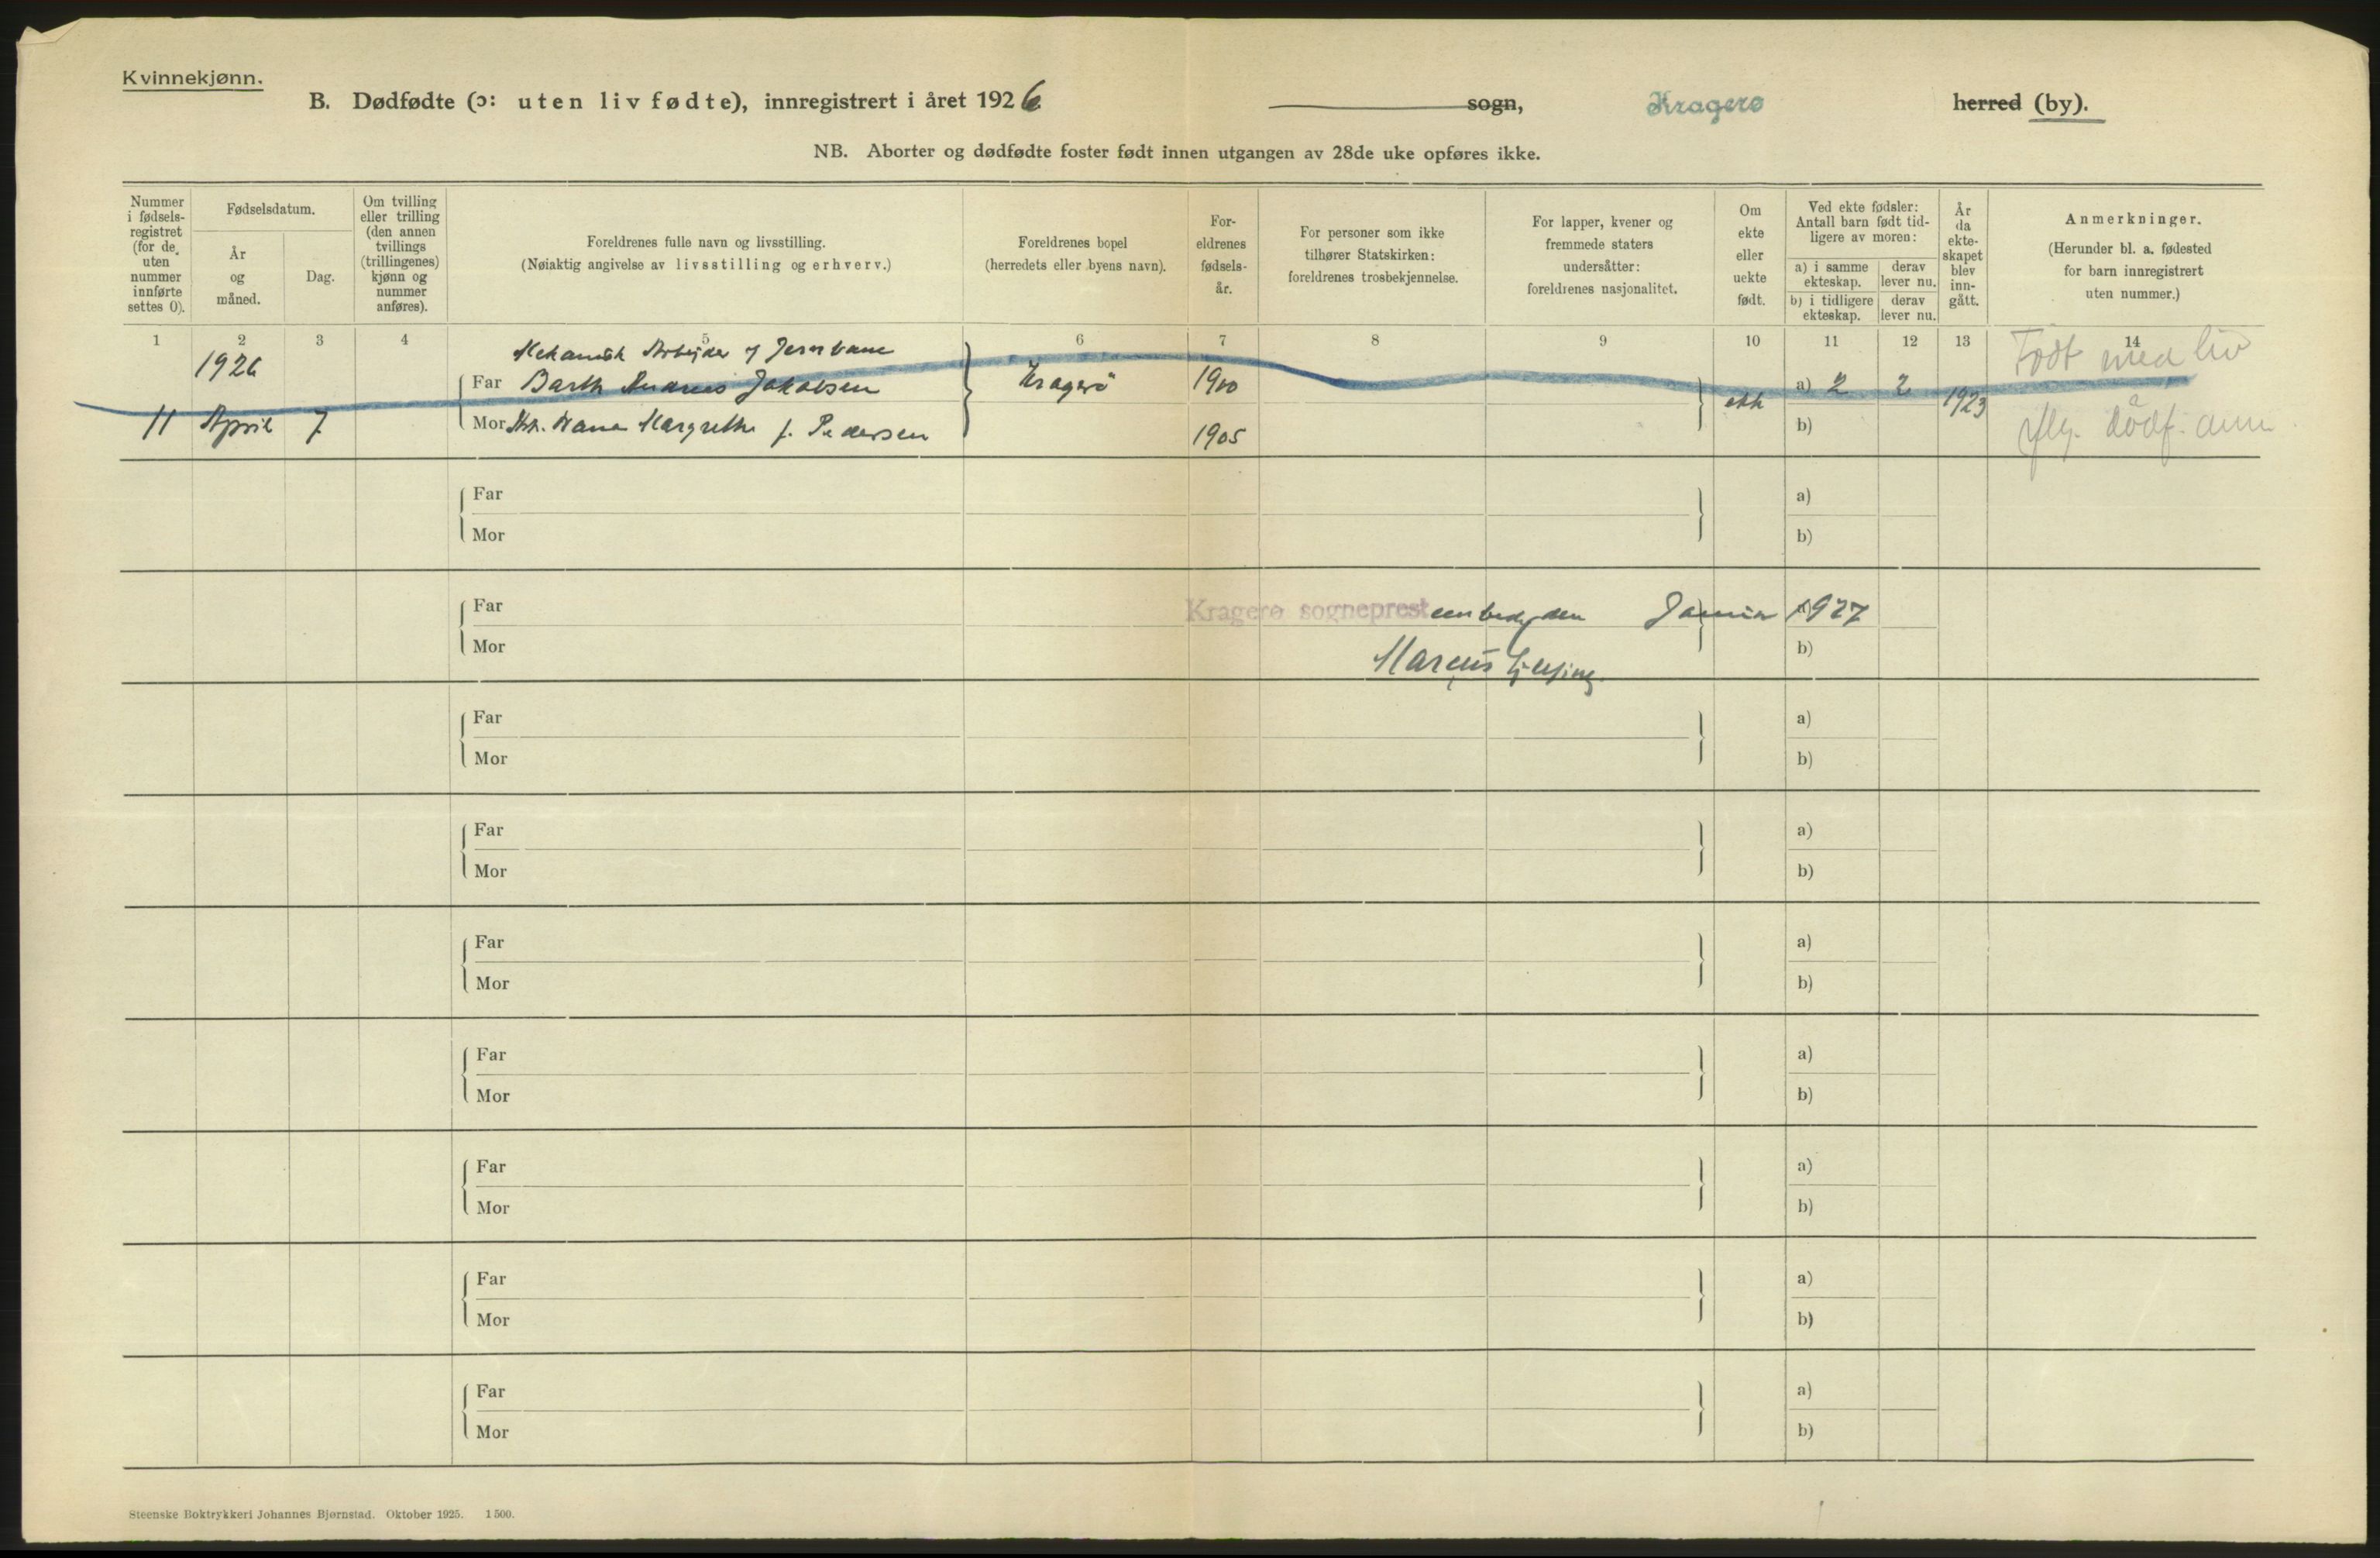 Kvinnekjønn.
B. Dødfødte (ɔ: uten liv fødte), innregistrert i året 1926 sogn, Kragerø herred (by).
NB. Aborter og dødfødte foster født innen utgangen av 28de uke opføres ikke.
Nummer i fødsels-registret (for de uten nummer innførte settes 0).
Fødselsdatum.
År og måned.
Dag.
Om tvilling eller trilling (den annen tvillings (trillingenes) kjønn og nummer anføres).
Foreldrenes fulle navn og livsstilling.
(Nøiaktig angivelse av livsstilling og erhverv.)
Foreldrenes bopel
(herredets eller byens navn).
For-eldrenes fødsels-år.
For personer som ikke tilhører Statskirken: foreldrenes trosbekjennelse.
For lapper, kvener og fremmede staters undersåtter: foreldrenes nasjonalitet.
Om ekte eller uekte født.
Ved ekte fødsler: Antall barn født tid-ligere av moren:
a) i samme ekteskap.
derav lever nu.
b) i tidligere ekteskap.
derav lever nu.
År da ekte-skapet blev inn-gått.
Anmerkninger.
(Herunder bl. a. fødested for barn innregistrert uten nummer.)
1 2 3 4 5 6 7 8 9 10 11 12 13 14
1926 Mekanisk Arbejder Jernbane Født med liv
Far Barth Andreas Jakobsen Kragerö 1900 ekk a) 2 2 1923
11 April 7 Mor Margrethe f. Pedersen 1905 b) dödf.
Far a)
Mor b)
Far Kragerø sogneprestembede, den Januar 1927
Mor Marcus b)
Far a)
Mor b)
Far a)
Mor b)
Far a)
Mor b)
Far a)
Mor b)
Far a)
Mor b)
Far a)
Mor b)
Far a)
Mor b)
Steenske Boktrykkeri Johannes Bjørnstad. Oktober 1925. 1500.